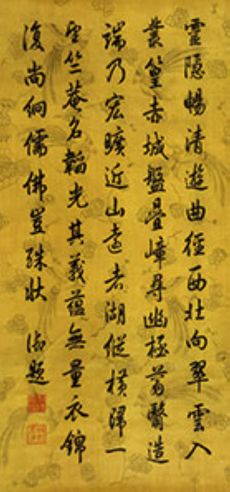 靈隱暢清遊曲徑西北向翠雲入
叢篁赤城盤疊嶂尋幽極蓊翳造
端乃宏曠近山遠者湖縱橫歸一
望竺菴名韜光其義蘊無量衣錦
復尚絅儒佛豈殊狀 御題